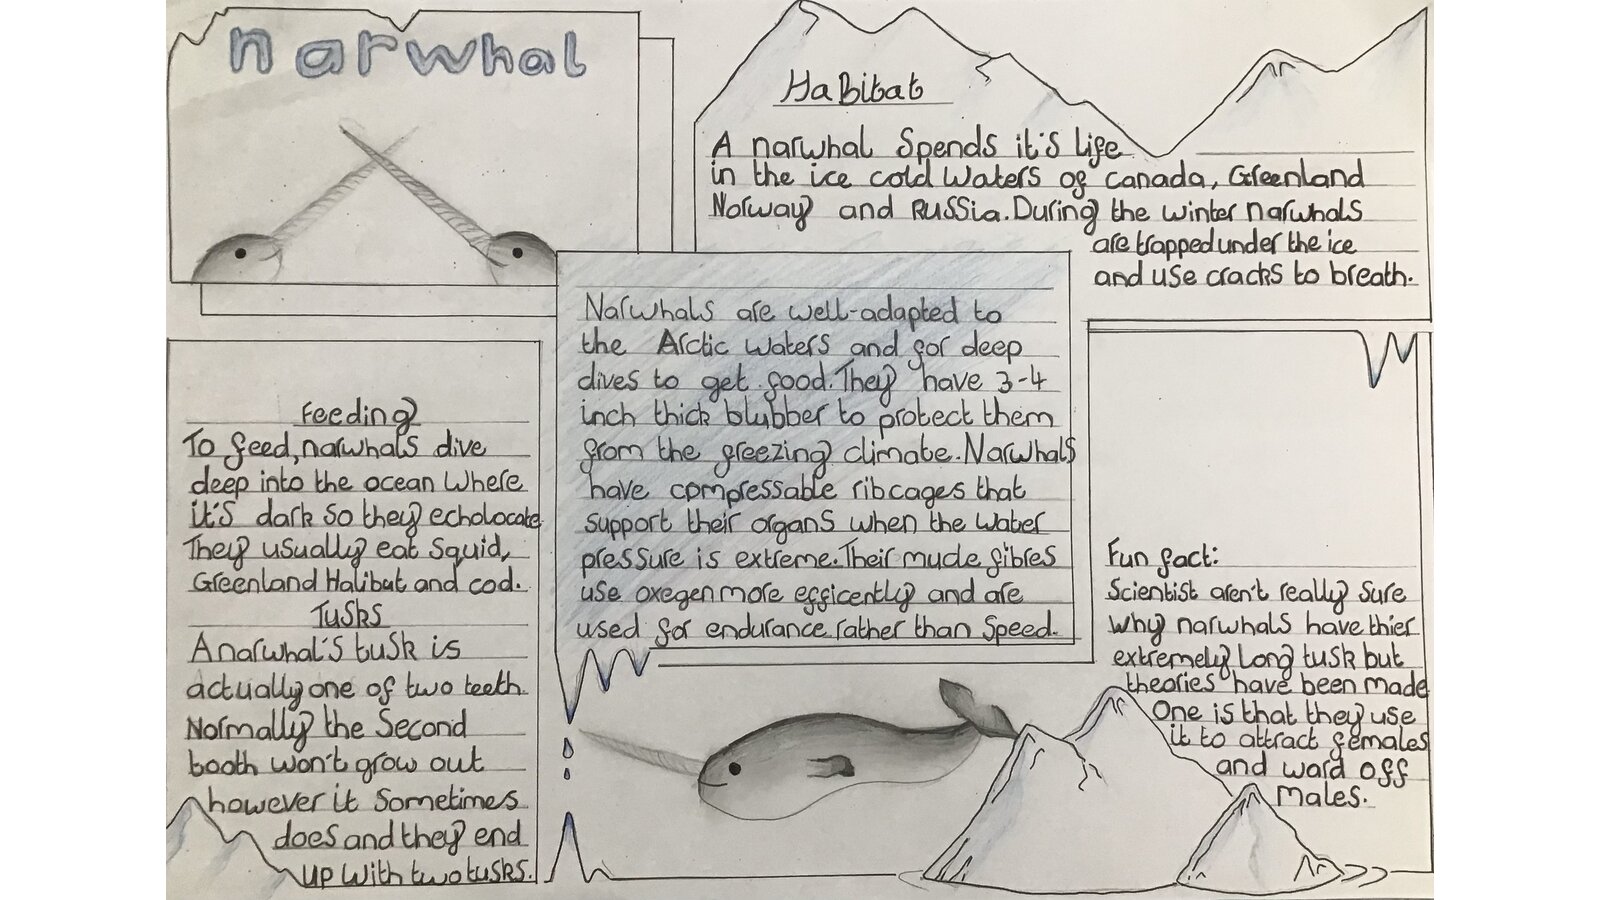 narwhal
HaBitat
A narwhal Spends it's life
in the ice cold waters of canada, Greenland
Norway and Russia. During the winter narwhals
are trapped under the ice
and use cracks to breath.
Narwhals are well-adapted to
the Arctic waters and for deep
dives to get food. They have 3-4
inch thick blubber to protect them
from the freezing climate. Narwhals
have compressable ribcages that
support their organs when the water
pressure is extreme. Their mucle fibres
use oxegen more efficently and are
used for endurance rather than speed.
Feeding
To feed, narwhals dive
deep into the ocean where
it's dark so they echolocate.
They usually eat squid,
Greenland Halibut and cod.
Tusks
A narwhal's tusk is
actually one of two teeth
Normally the second
tooth won't grow out
however it sometimes
does and they end
up with two tusks.
Fun fact:
Scientist aren't really sure
why narwhals have thier
extremely long tusk but
theories have been made
One is that they use
it to attract females
and ward off
males.